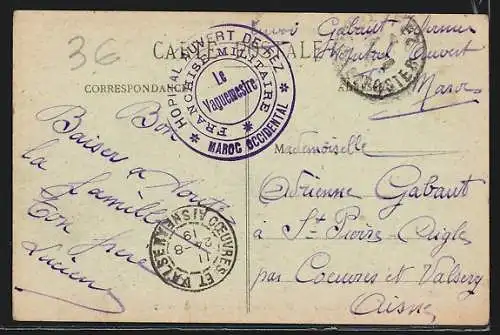 3E
Envoi Gabaut
Hôpital Ouvert
Maroc
CARTE POSTALE
CORRESPONDANCE
HÔPITAL OUVERT DE FEZ
FRANCHISE MILITAIRE
Le
Vaguemestre
MAROC OCCIDENTAL
POSTES
Bon
Baiser à toute
la famille
Ton frère
Lucien
Mademoiselle
Adrienne Gabaut
à St Pierre Aigle
par Coeuvres et Valsery
Aisne
COEUVRES ET VALSERY AISNE
11 -8
19